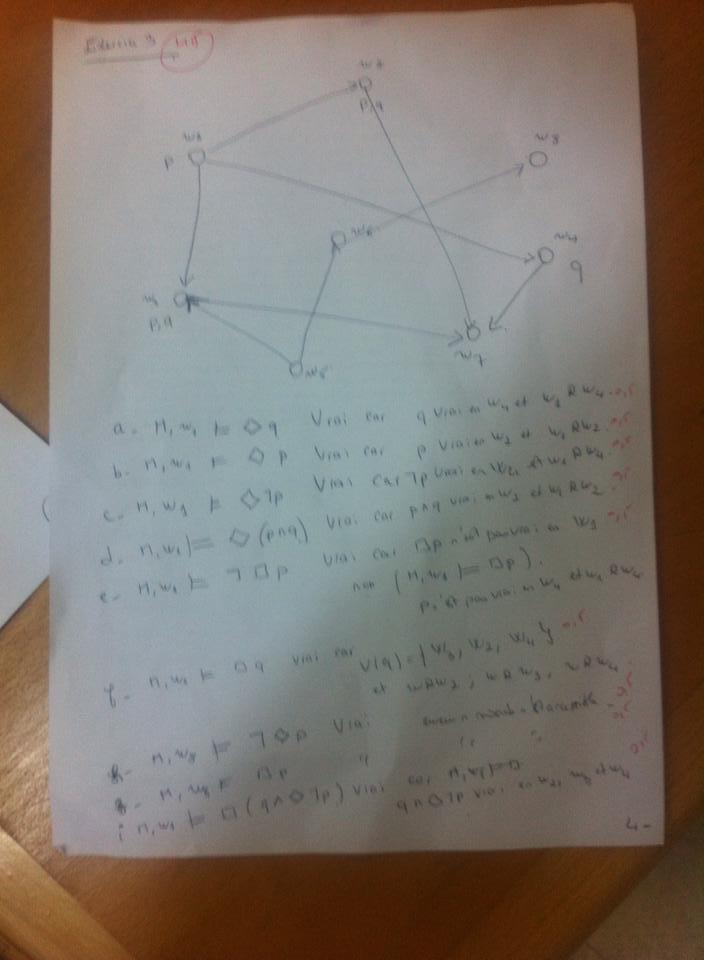 Exercice 3
w2
p,q
w1
p
w8
w6
w4
q
w3
p,q
w7
w5
a- M, w1 ⊨ ◇q Vrai car q vrai en w4 et w1 R w4 0,5
b- M, w1 ⊨ ◇p Vrai car p vrai en w2 et w1 R w2 0,5
c- M, w1 ⊨ ◇¬p Vrai car ¬p vrai en w4 et w1 R w4 0,5
d- M, w1 ⊨ ◇(p∧q) Vrai car p∧q vrai en w2 et w1 R w2 0,5
e- M, w1 ⊨ ¬□p Vrai car □p n'est pas vrai en w1 0,5
non (M, w1 ⊨ □p).
p n'est pas vrai en w4 et w1 R w4
f- M, w1 ⊨ □q vrai car V(q) = { w3, w2, w4 } 0,5
et w1 R w2 ; w1 R w3, w1 R w4
M, w8 ⊨ ¬◇p Vrai 0,5
g- M, w8 ⊨ □p " " " 0,5
i M, w1 ⊨ □(q∧◇¬p) Vrai car 0,5
q∧◇¬p vrai en w2, w3 et w4
4-